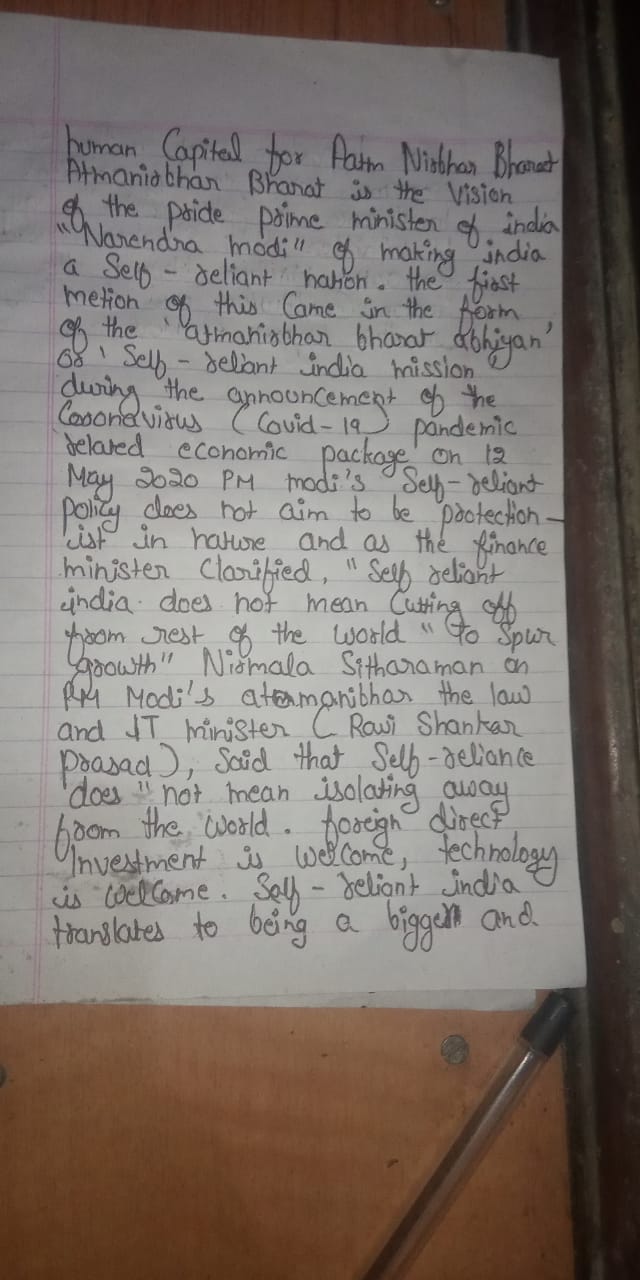 human Capital for Aatm Nirbhar Bharat
Atmanirbhar Bharat is the Vision
of the pride prime minister of india
"Narendra modi" of making india
a Self - reliant nation. the first
metion of this Came in the form
of the 'atmanirbhar bharat abhiyan'
or ' Self - reliant india mission
during the announcement of the
Coronavirus (Covid-19) pandemic
related economic package on 12
May 2020 PM modi's Self-reliant
policy does not aim to be protection-
ist in nature and as the finance
minister Clarified, " Self reliant
india does not mean Cutting off
from rest of the world " to Spur
growth" Nirmala Sitharaman on
PM Modi's atmanibhar the law
and IT minister ( Ravi Shankar
prasad), Said that Self-reliance
does " not mean isolating away
from the world. foreign direct
Investment is welcome, technology
is welCome. Self - reliant india
translates to being a bigger and